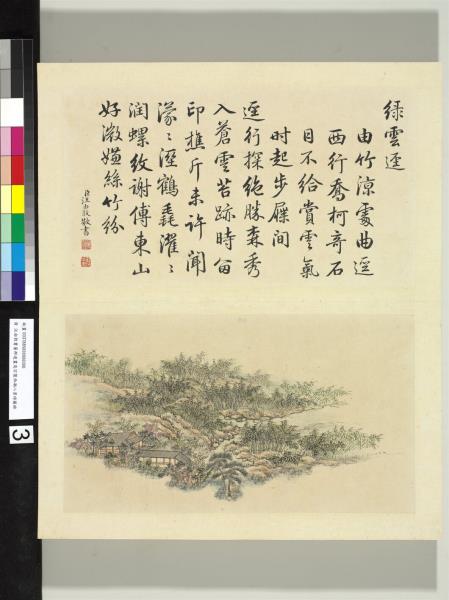 綠雲逕
由竹涼處曲逕
西行喬柯奇石
目不給賞雲氣
時起步屧間
逕行探絶勝森秀
入蒼雲苔跡時留
印樵斤未許聞
濛〻溼鶴毳濯〻
潤螺紋謝傅東山
好微嫌絲竹紛
臣汪由敦敬書
3